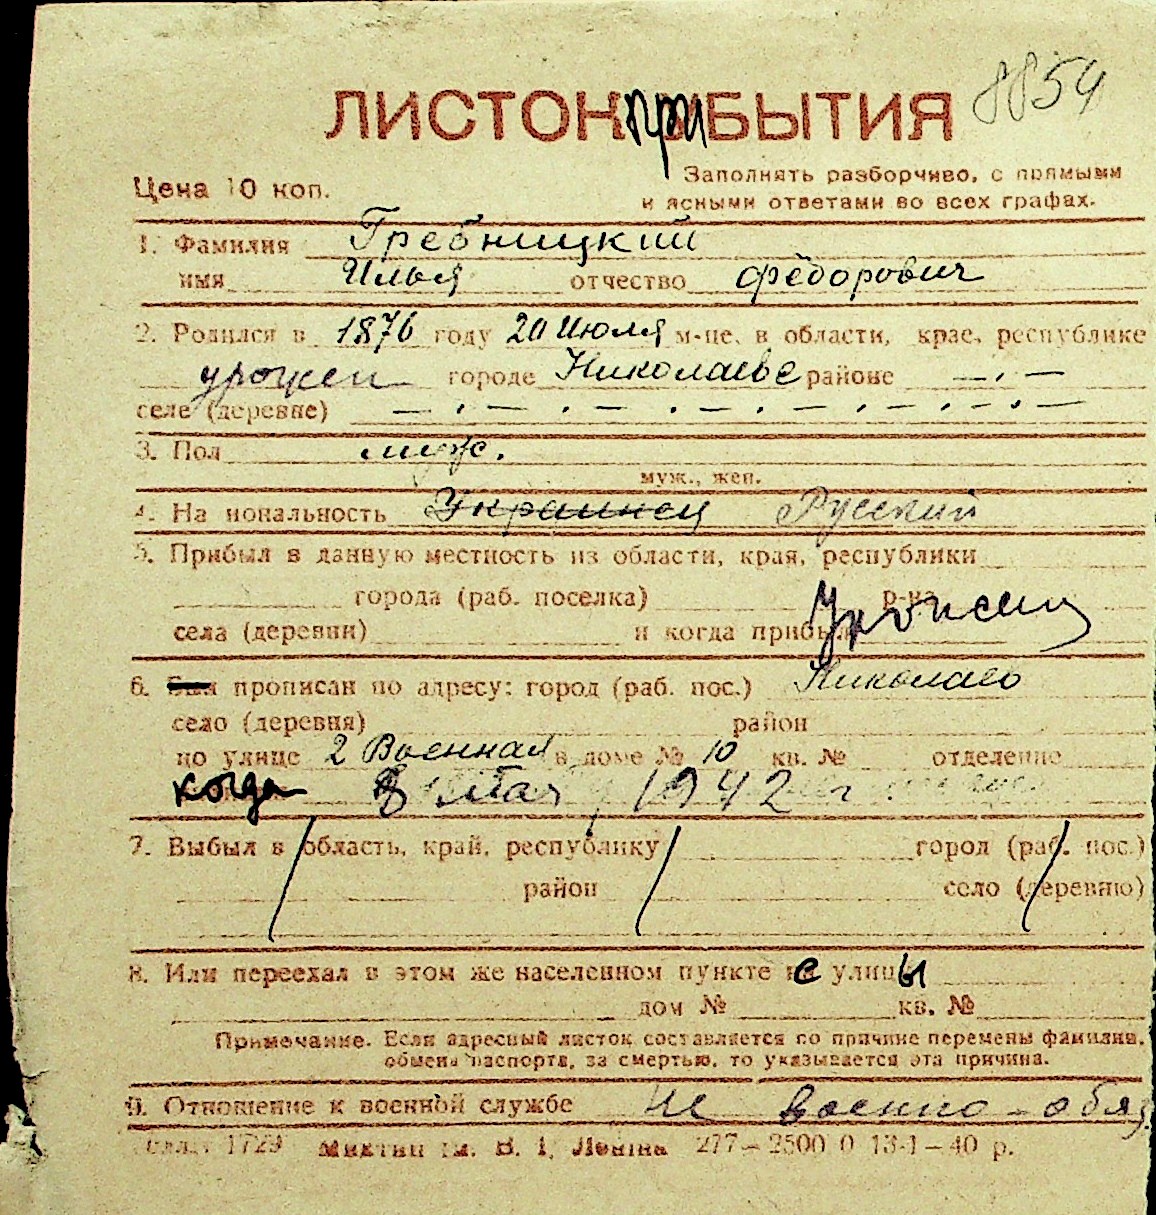 8854
ЛИСТОК ПРИБЫТИЯ
Цена 10 коп.
Заполнять разборчиво, с прямыми
и ясными ответами во всех графах.
1. Фамилия Гребницкий
имя Илья отчество Фёдорович
2. Родился в 1876 году 20 Июля м-це, в области, крае, республике
урожен городе Николаеве районе — . —
селе (деревне) — . — . — . — . — . — . —
3. Пол муж.
муж., жен.
4. На иональность Украинец Русский
5. Прибыл в данную местность из области, края, республики
города (раб. поселка) р-на
села (деревни) и когда прибыл Урожен
6. Был прописан по адресу: город (раб. пос.) Николаев
село (деревня) район
по улице 2 Военная в доме № 10 кв. № отделение
когда 8 мая 1942 г.
7. Выбыл в область, край, республику город (раб. пос.)
район село (деревню)
8. Или переехал в этом же населенном пункте с улицы
дом № кв. №
Примечание. Если адресный листок составляется по причине перемены фамилии,
обмена паспорта, за смертью, то указывается эта причина.
9. Отношение к военной службе Не военно-обяз.
1729 им. В. І. Леніна 277—2500 0 13-1—40 р.